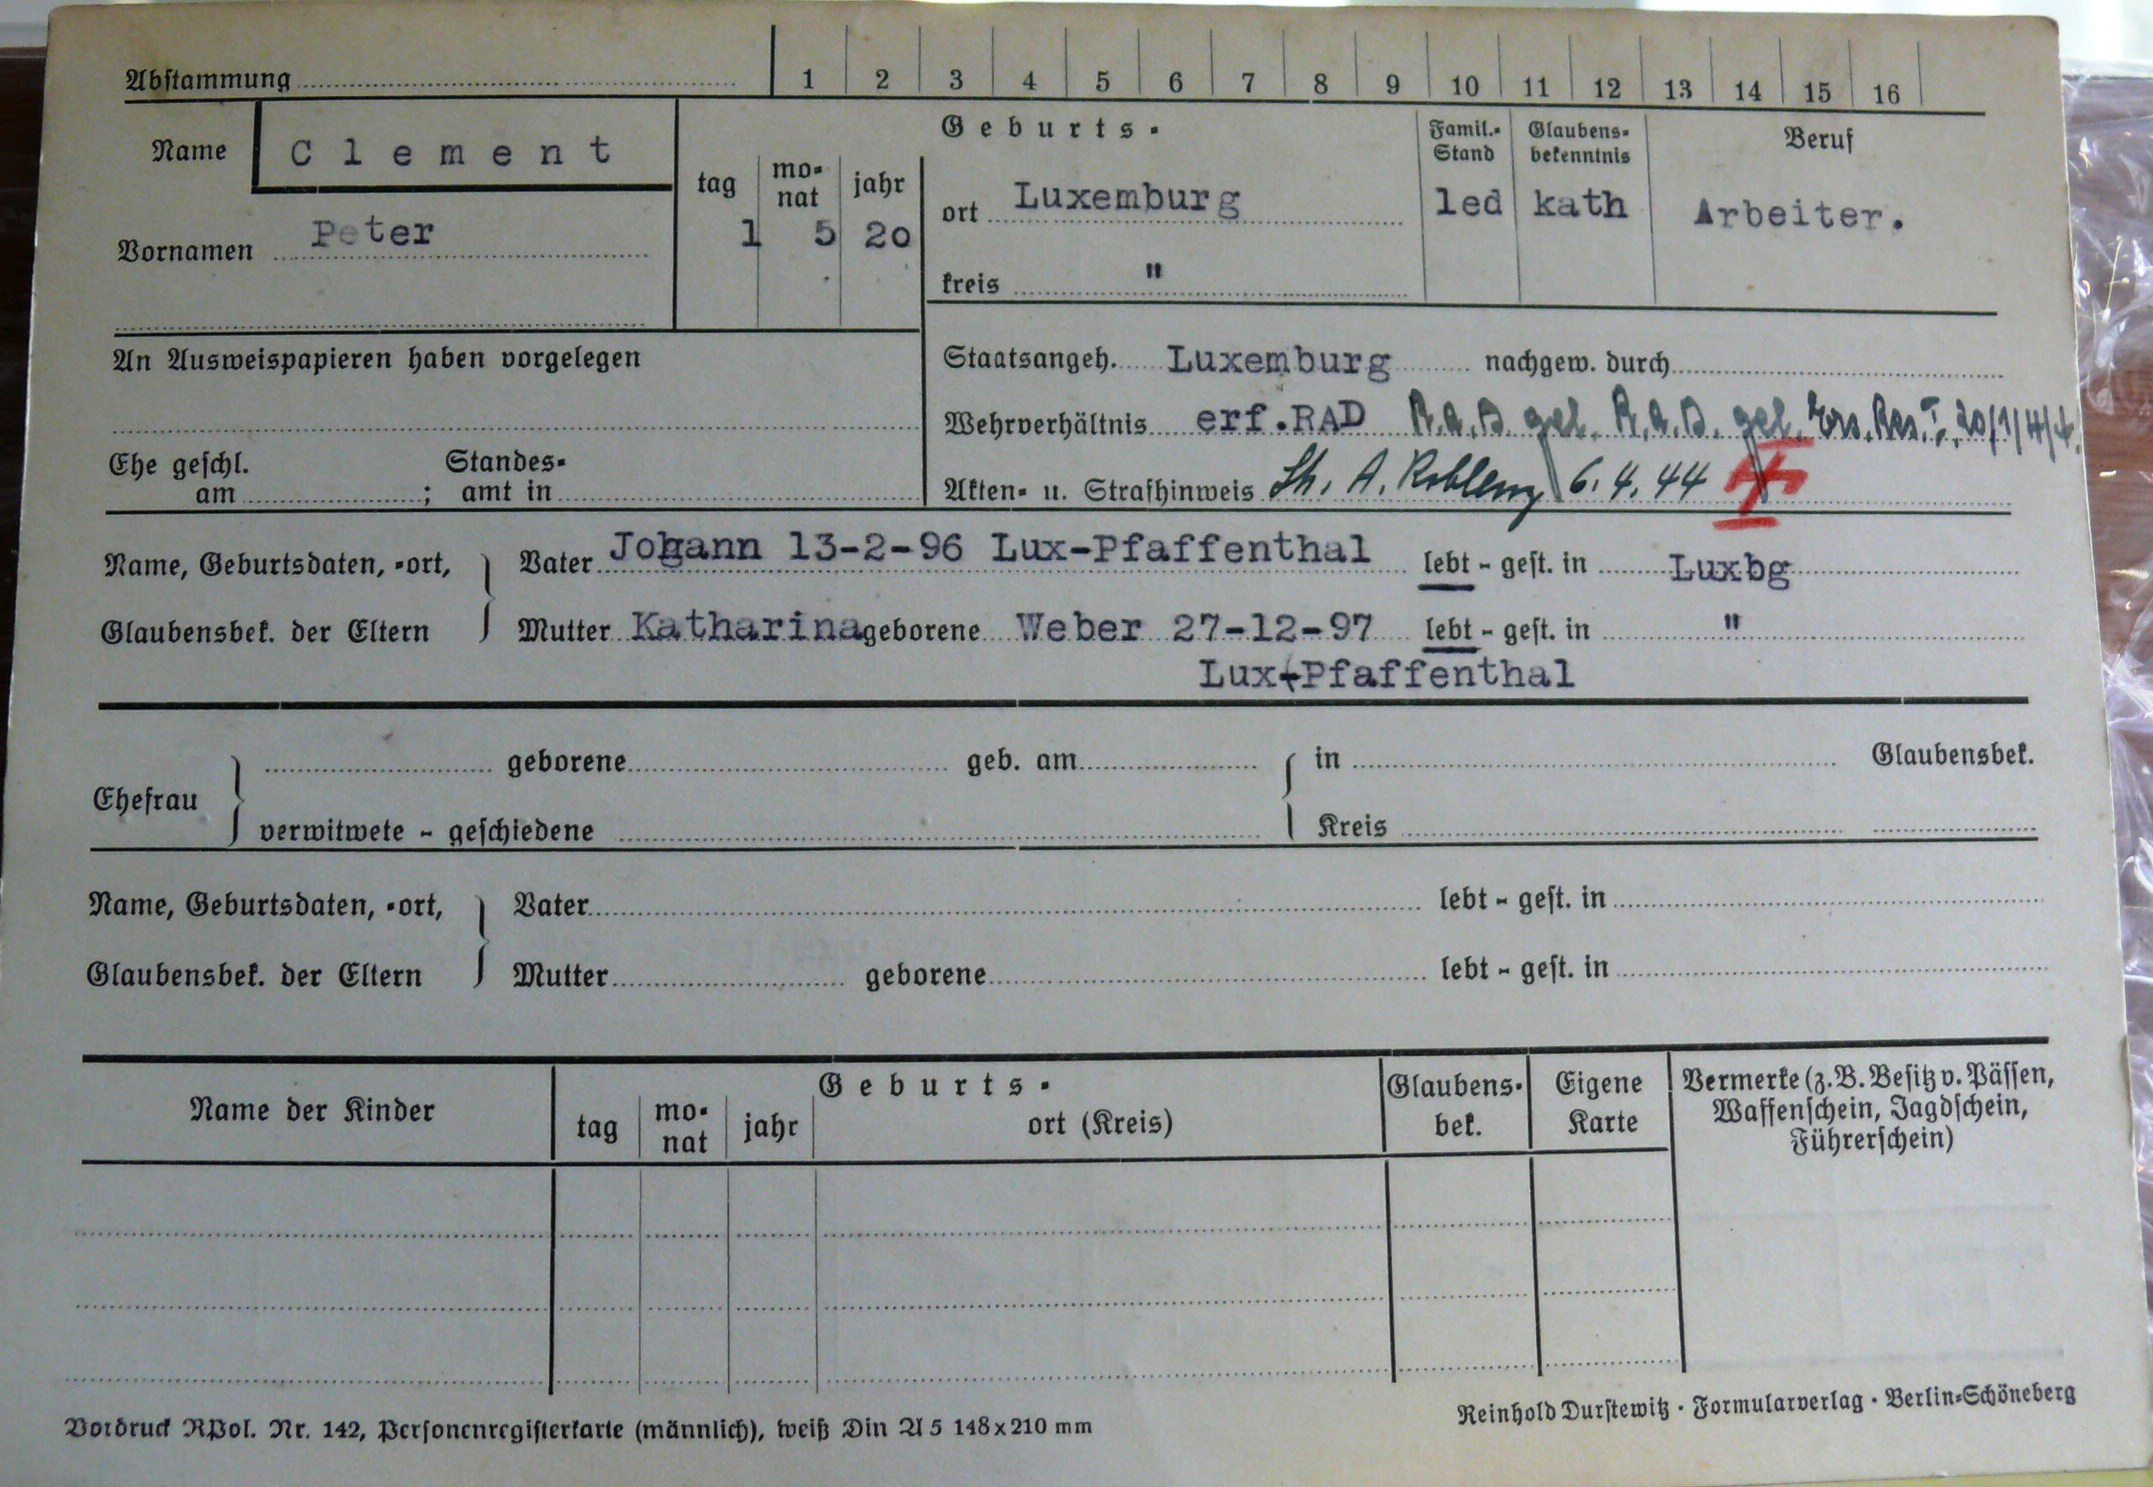 Abstammung 1 2 3 4 5 6 7 8 9 10 11 12 13 14 15 16
Name Clement
Vornamen Peter
tag monat jahr
1 5 20
Geburts-
ort Luxemburg
kreis "
Famil.-Stand
led
Glaubensbekenntnis
kath
Beruf
Arbeiter.
An Ausweispapieren haben vorgelegen
Ehe geschl. am ; Standesamt in
Staatsangeh. Luxemburg nachgew. durch
Wehrverhältnis erf.RAD R.A.D. gel. R.A.D. gel. Ers.Res.I,
Akten- u. Strafhinweis St. A. Koblenz 6.4.44
Name, Geburtsdaten, -ort, Vater Johann 13-2-96 Lux-Pfaffenthal lebt - gest. in Luxbg
Glaubensbek. der Eltern Mutter Katharina geborene Weber 27-12-97 lebt - gest. in "
Lux-Pfaffenthal
Ehefrau geborene geb. am in Glaubensbek.
verwitwete - geschiedene Kreis
Name, Geburtsdaten, -ort, Vater lebt - gest. in
Glaubensbek. der Eltern Mutter geborene lebt - gest. in
Name der Kinder
Geburts-
tag monat jahr ort (Kreis)
Glaubensbek.
Eigene Karte
Vermerke (z. B. Besitz v. Pässen,
Waffenschein, Jagdschein,
Führerschein)
Vordruck RPol. Nr. 142, Personenregisterkarte (männlich), weiß Din A 5 148x210 mm
Reinhold Durstewitz · Formularverlag · Berlin-Schöneberg